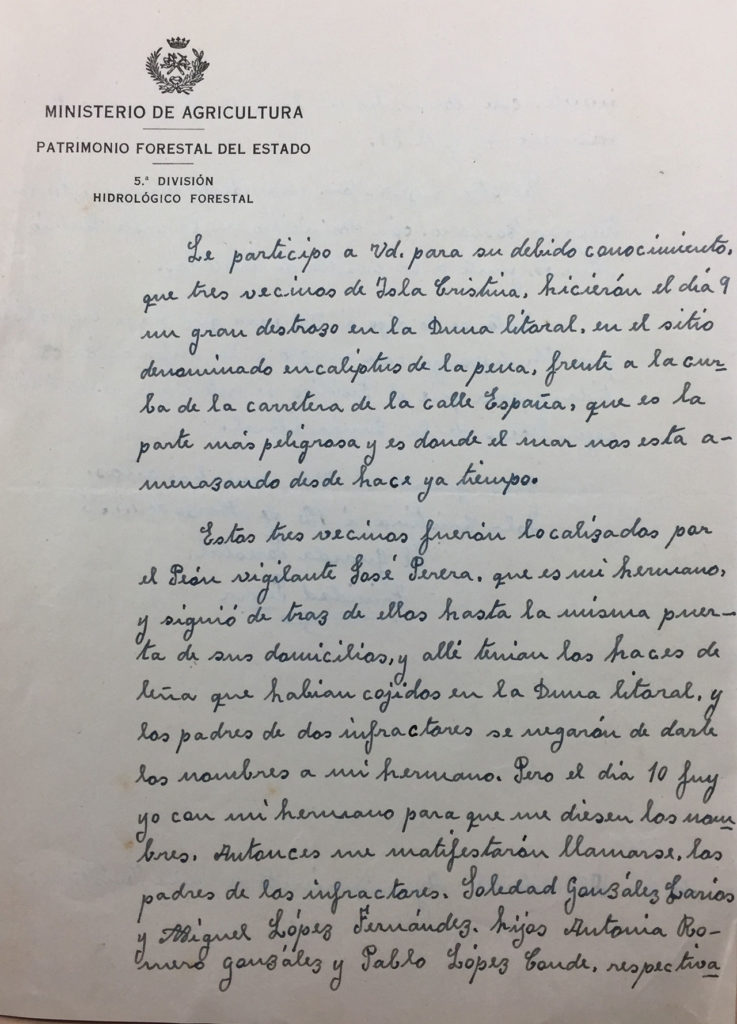 MINISTERIO DE AGRICULTURA
PATRIMONIO FORESTAL DEL ESTADO
5.ª DIVISIÓN
HIDROLÓGICO FORESTAL
Le participo a Vd. para su debido conocimiento,
que tres vecinos de Isla Cristina, hicierón el día 9
un gran destrozo en la Duna litoral, en el sitio
denominado encaliptus de la pena, frente a la cur-
ba de la carretera de la calle España, que es la
parte más peligrosa y es donde el mar nos esta a-
menazando desde hace ya tiempo.
Estos tres vecinos fuerón localizados por
el Peón vigilante José Perera, que es mi hermano,
y siguió de traz de ellos hasta la misma puer-
ta de sus domicilios, y allé tenian los haces de
leña que habian cojidos en la Duna litoral, y
los padres de dos infractores se negarón de darle
los nombres a mi hermano. Pero el dia 10 fuy
yo con mi hermano para que me diesen los nom-
bres. Autonces me matifestarón llamarse, los
padres de los infractores. Soledad González Larios
y Miguel López Fernández. hijos Antonia Ro-
mero González y Pablo López Conde, respectiva